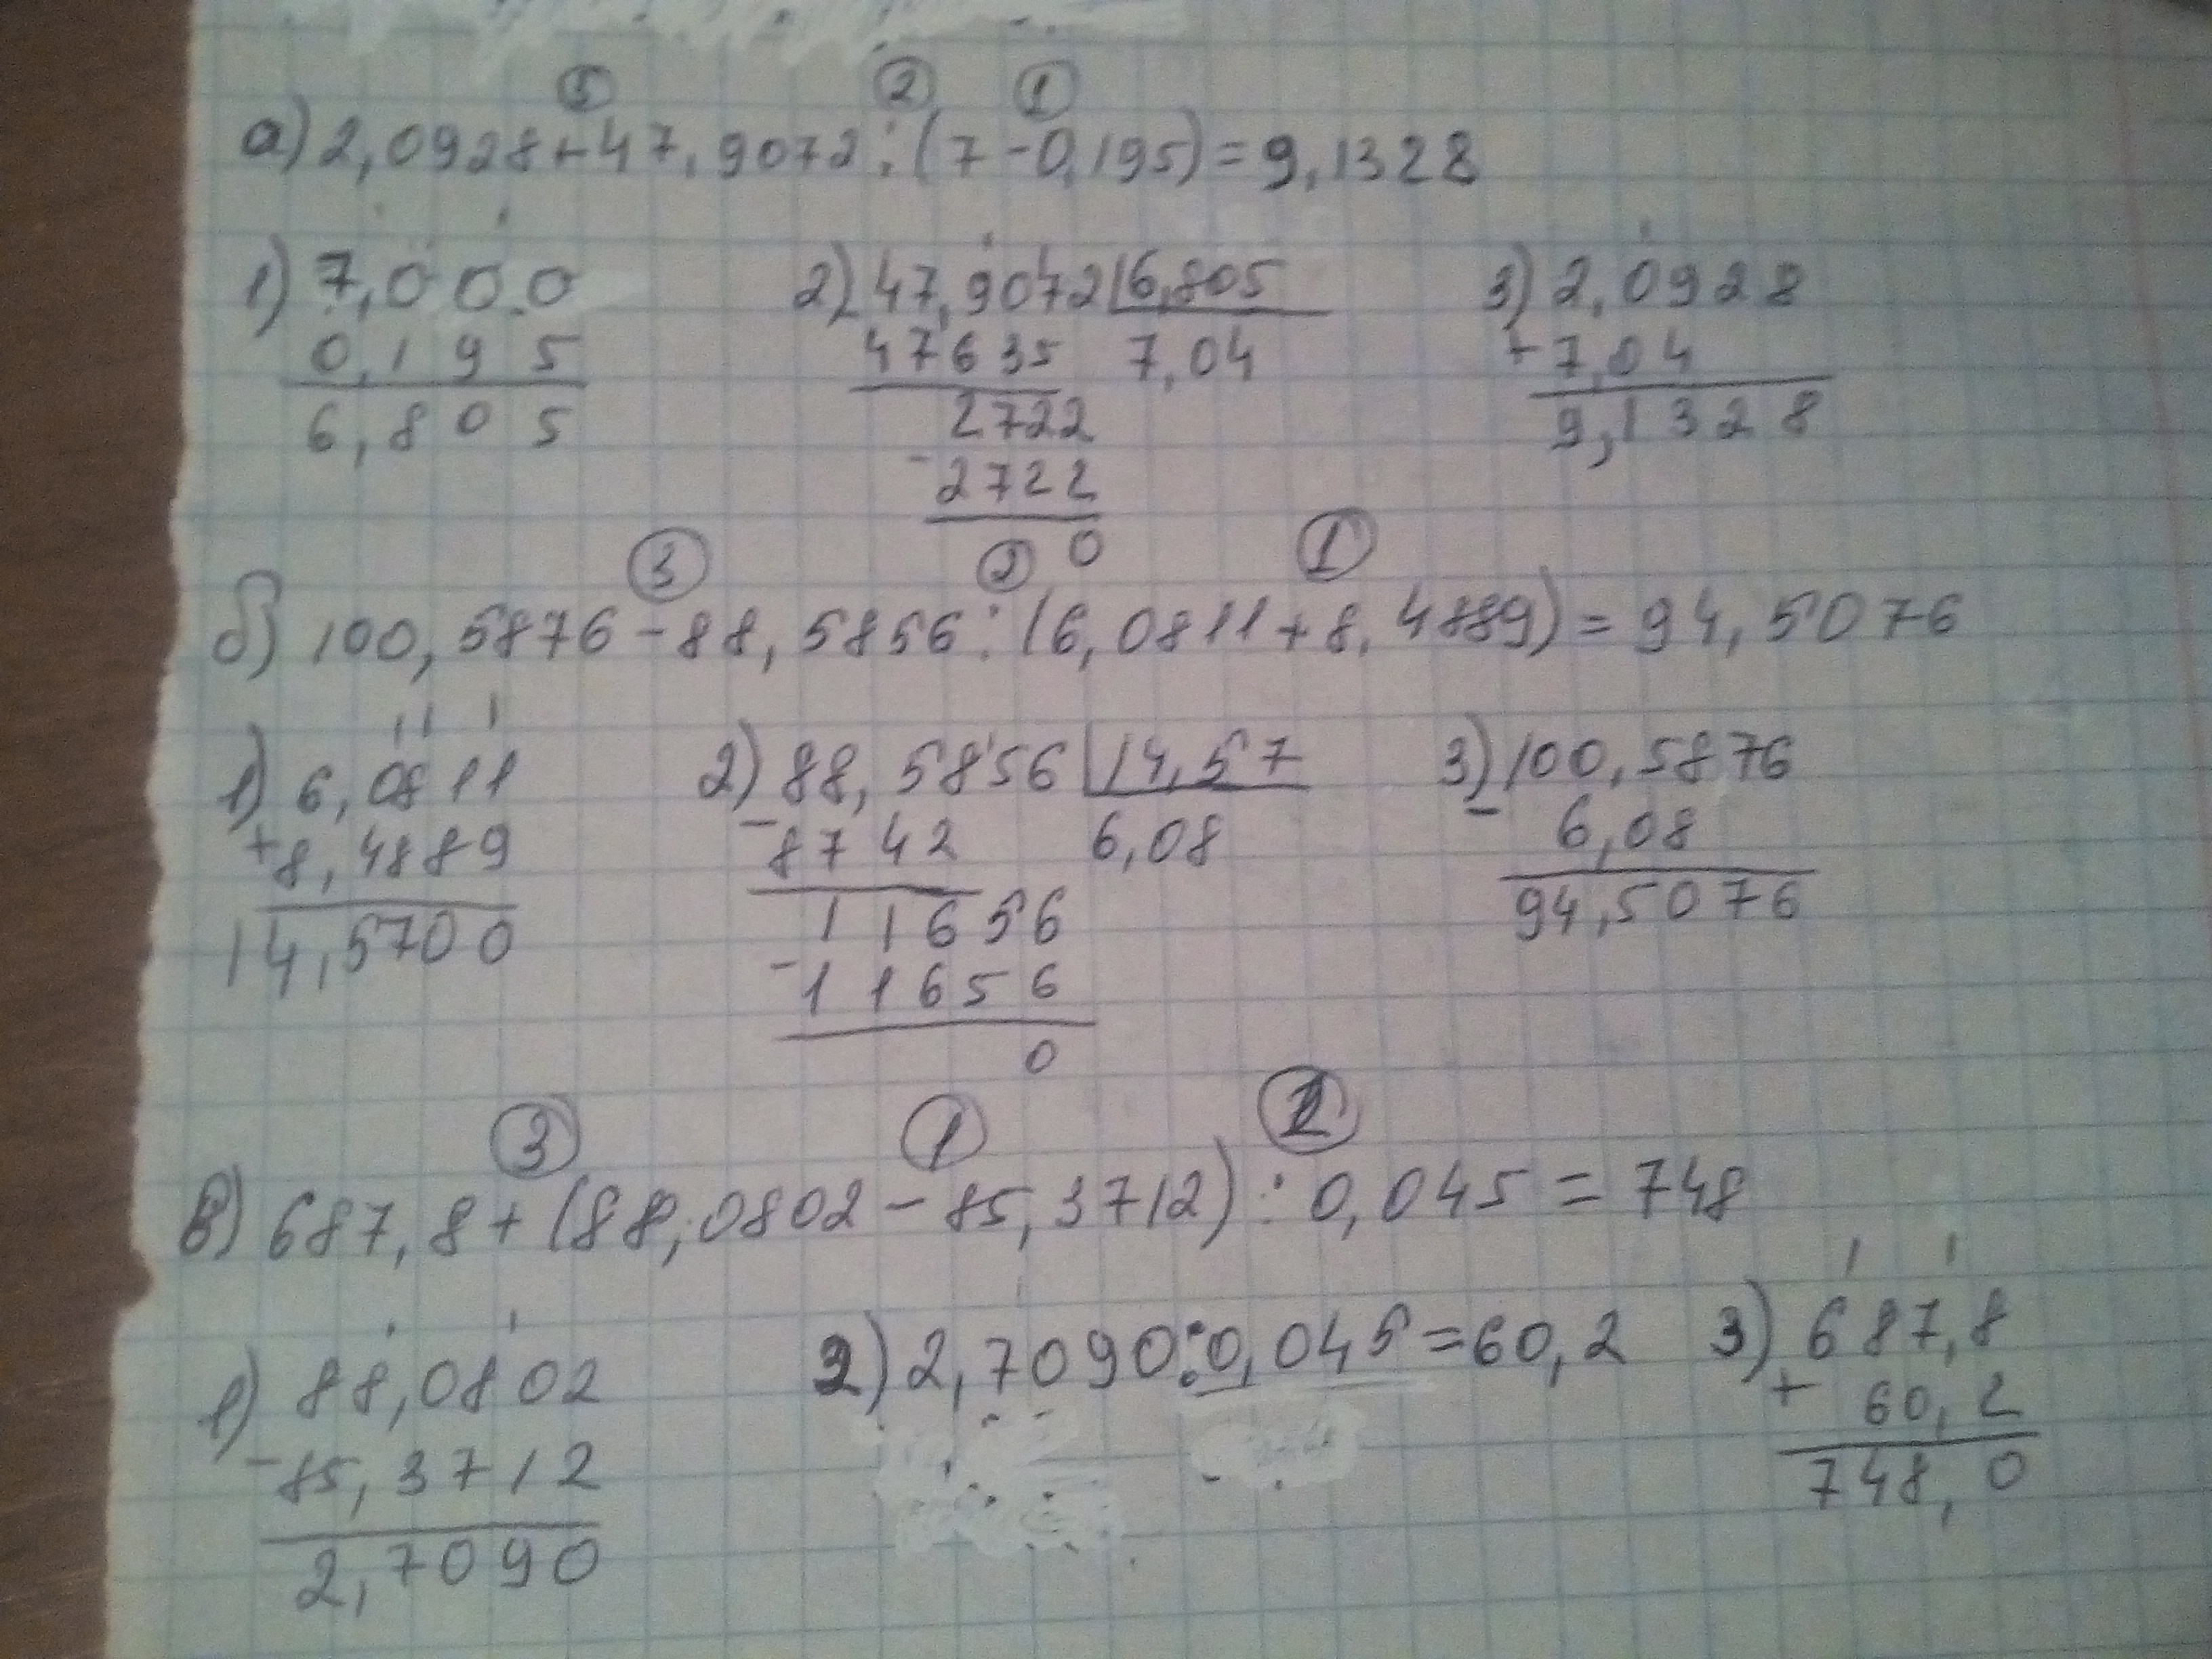 ③ ② ①
а) 2,0928+47,9072:(7-0,195)=9,1328
1) 7,000 2) 47,9072 6,805 3) 2,0928
0,195 47635 7,04 +7,04
6,805 2722 9,1328
-2722
0
③ ② ①
б) 100,5876-88,5856:(6,0811+8,4889)=94,5076
1) 6,0811 2) 88,5856 14,57 3) 100,5876
+8,4889 -8742 6,08 - 6,08
14,5700 11656 94,5076
-11656
0
③ ① ②
в) 687,8+(88,0802-85,3712):0,045=748
1) 88,0802 2) 2,7090:0,045=60,2 3) 687,8
-85,3712 + 60,2
2,7090 748,0